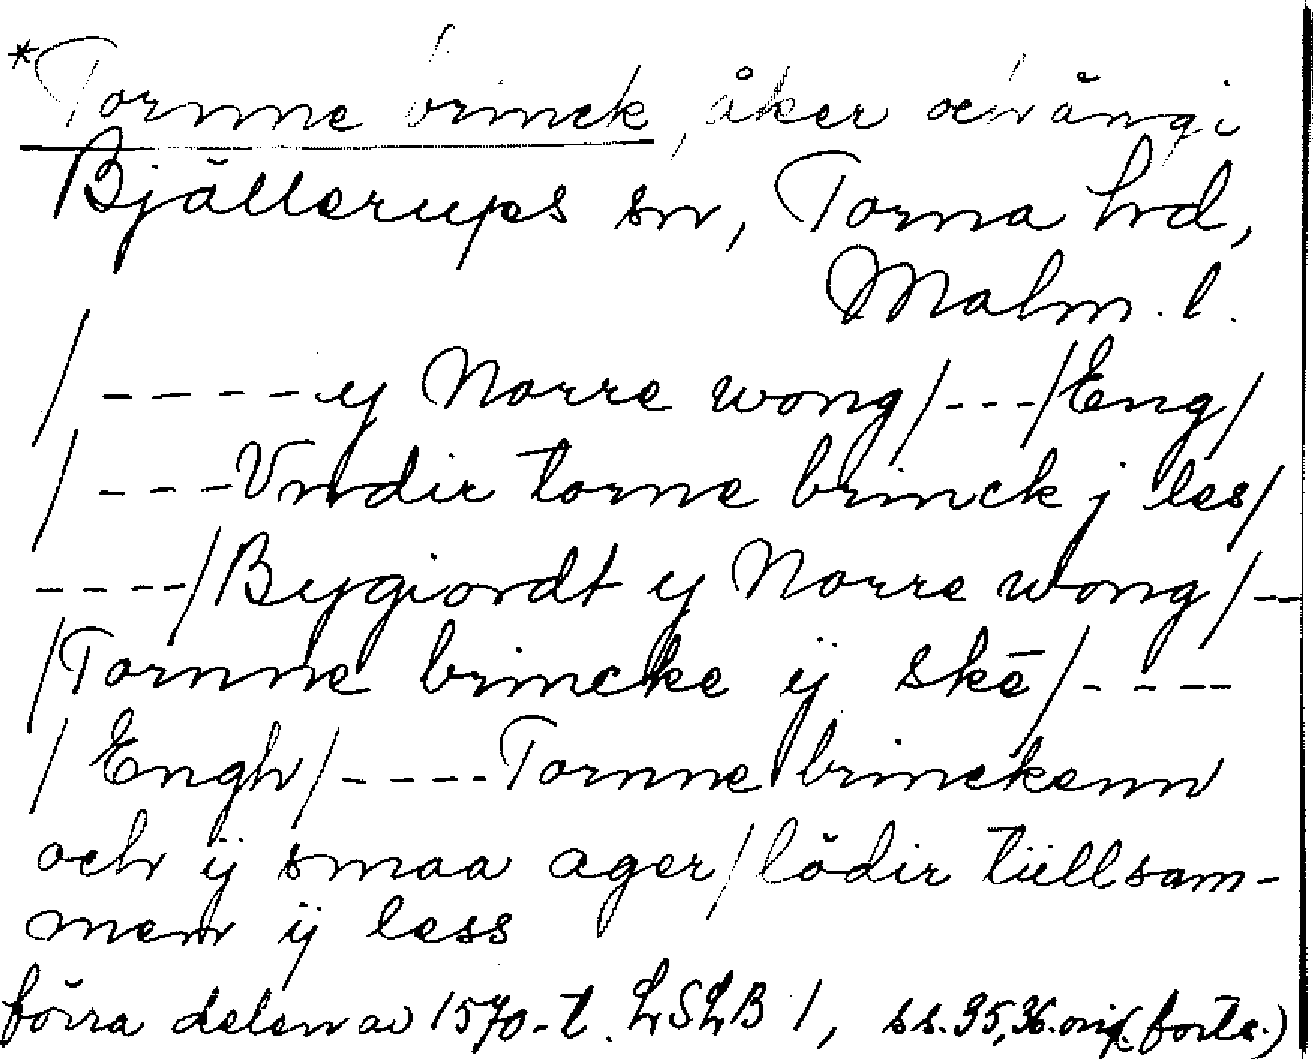 *Tornne brinck, åker och äng i
Bjällerups sn, Torna hd,
Malm. l.
/ ----- y Norre wong/---/Eng/
/ ---Vndir torne brinck j les/
----/Bygiordt y Norre wong/--
/Tornne brincke ij skē/----
/Engh/----Tornne brinckenn
och ij smaa ager/lödir tiillsam-
menn ij less
förra delen av 1570-t. LSLB 1, ss. 35, 36. orig. (forts.)